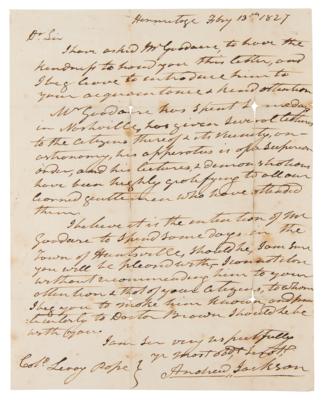 Hermitage Feby 13th 1827
Dr Sir
I have asked Mr Goodacre, to have the
kindness to hand you this letter, and
I beg leave to introduce him to
your acquaintance & kind attention
Mr Goodacre has spent some days
in Nashville, has given several lectures
to the citizens thereof & its vicinity, on
astronomy, his apparatus is of a superior
order, and his lectures, & demonstrations
have been highly gratifying to all our
learned gentlemen who have attended
them.
I believe it is the intention of Mr
Goodacre to spend some days in the
town of Huntsville, should he, I am sure
you will be pleased with
without recommending him to your
attention & that of your citizens, to whom
I beg you to make him known, and
to Doctor Brown should he be
with you.
I am sir very respectfully
yr most obdt servt
Andrew Jackson
Colo. Leroy Pope